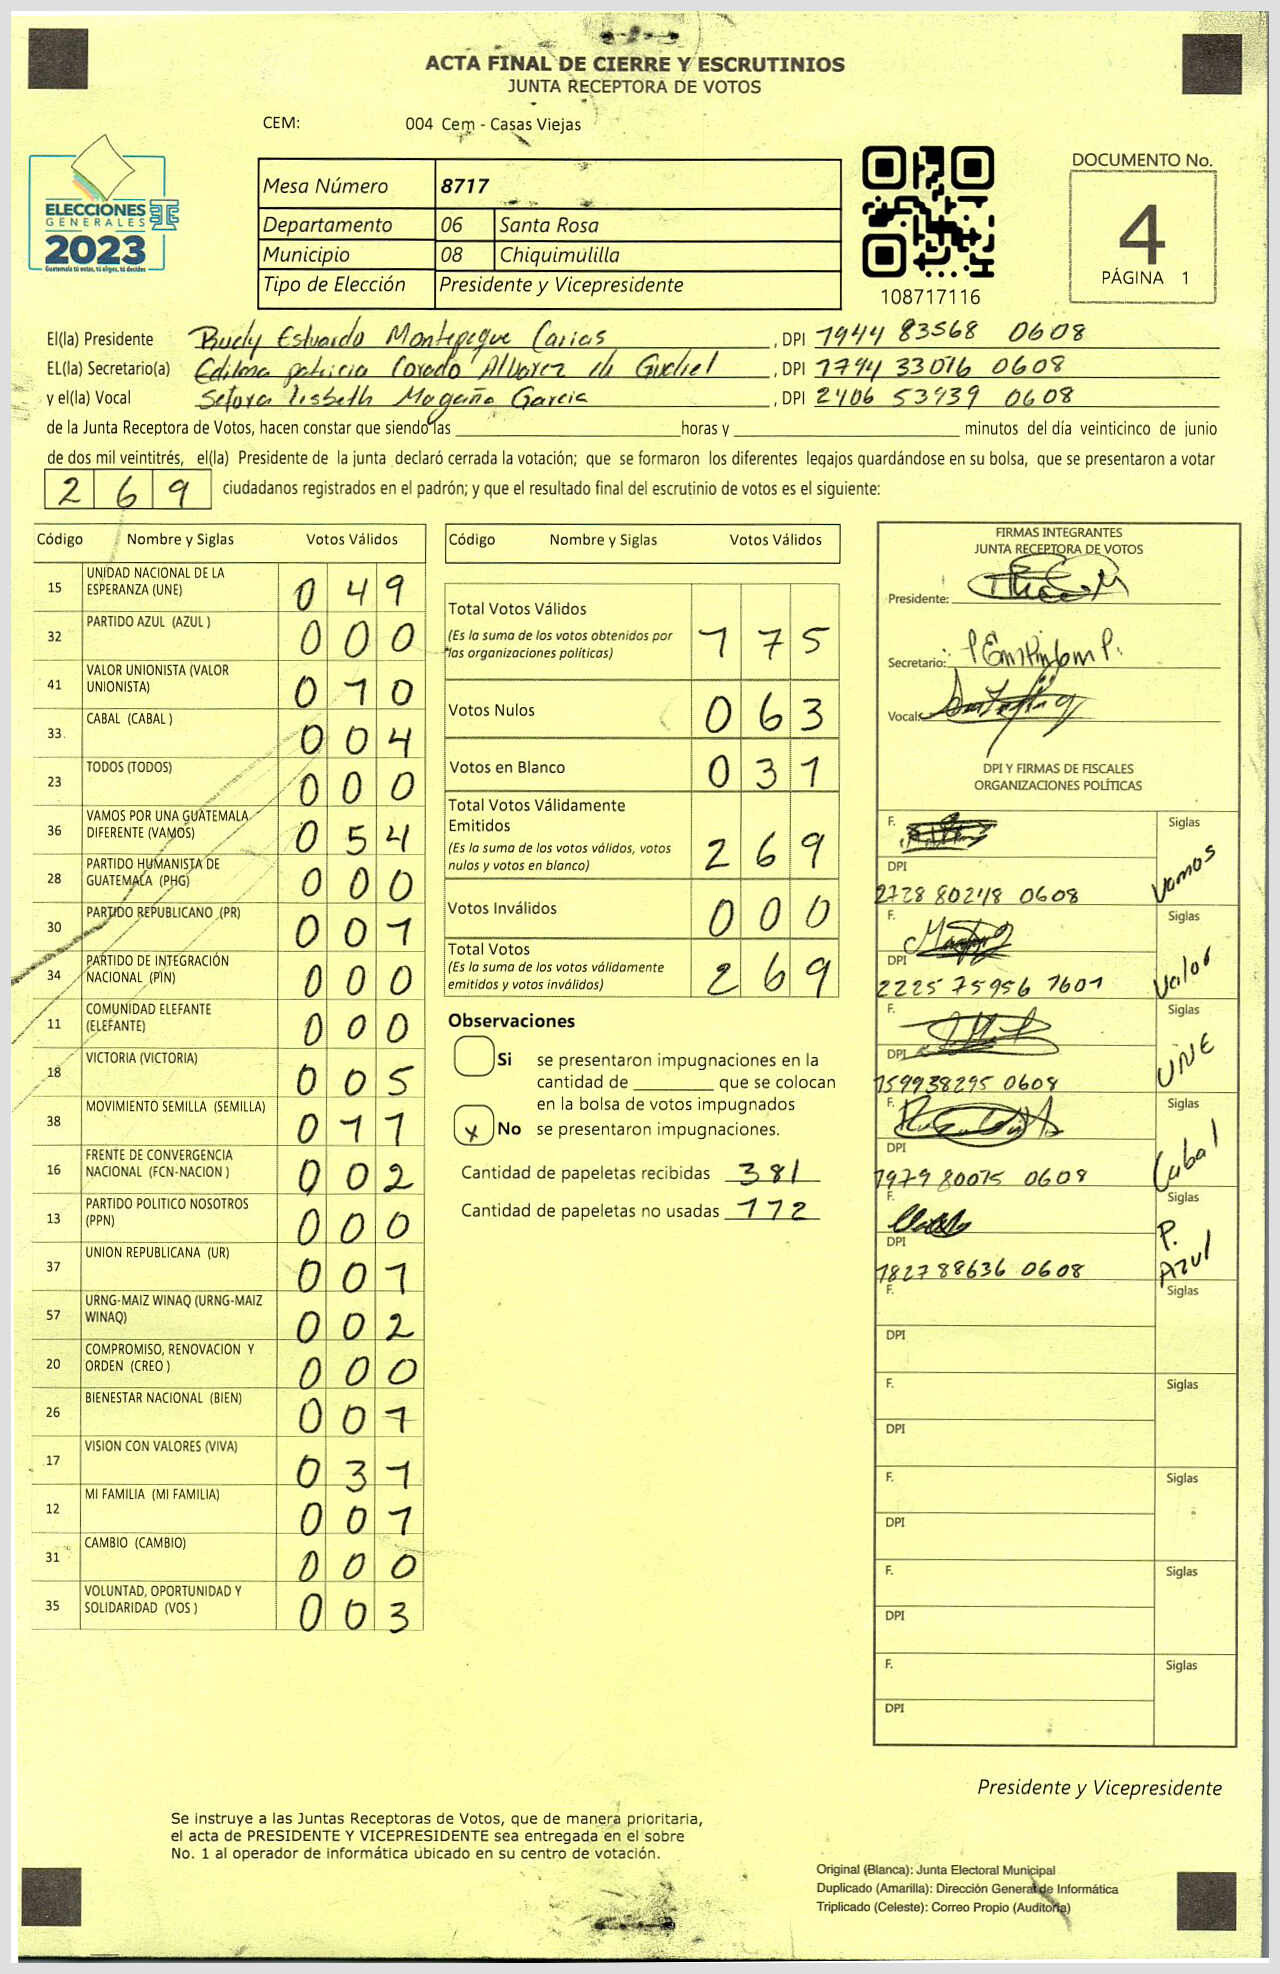 ACTA FINAL DE CIERRE Y ESCRUTINIOS
JUNTA RECEPTORA DE VOTOS
CEM: 004 Cem - Casas Viejas
ELECCIONES
GENERALES
2023
Guatemala tú votas, tú eliges, tú decides
Mesa Número 8717
Departamento 06 Santa Rosa
Municipio 08 Chiquimulilla
Tipo de Elección Presidente y Vicepresidente
108717116
DOCUMENTO No.
4
PÁGINA 1
El(la) Presidente Rudy Estuardo Montepeque Carias, DPI 1944 83568 0608
EL(la) Secretario(a) Edilma patricia Corado Alvarez de Gudiel, DPI 1794 33016 0608
y el(la) Vocal Sefora lisbeth Magaña Garcia, DPI 2406 53939 0608
de la Junta Receptora de Votos, hacen constar que siendo las ______ horas y ______ minutos del día veinticinco de junio
de dos mil veintitrés, el(la) Presidente de la junta declaró cerrada la votación; que se formaron los diferentes legajos guardándose en su bolsa, que se presentaron a votar
269 ciudadanos registrados en el padrón; y que el resultado final del escrutinio de votos es el siguiente:
Código Nombre y Siglas Votos Válidos
15 UNIDAD NACIONAL DE LA ESPERANZA (UNE) 049
32 PARTIDO AZUL (AZUL ) 000
41 VALOR UNIONISTA (VALOR UNIONISTA) 010
33 CABAL (CABAL ) 004
23 TODOS (TODOS) 000
36 VAMOS POR UNA GUATEMALA DIFERENTE (VAMOS) 054
28 PARTIDO HUMANISTA DE GUATEMALA (PHG) 000
30 PARTIDO REPUBLICANO (PR) 001
34 PARTIDO DE INTEGRACIÓN NACIONAL (PIN) 000
11 COMUNIDAD ELEFANTE (ELEFANTE) 000
18 VICTORIA (VICTORIA) 005
38 MOVIMIENTO SEMILLA (SEMILLA) 011
16 FRENTE DE CONVERGENCIA NACIONAL (FCN-NACION ) 002
13 PARTIDO POLITICO NOSOTROS (PPN) 000
37 UNION REPUBLICANA (UR) 001
57 URNG-MAIZ WINAQ (URNG-MAIZ WINAQ) 002
20 COMPROMISO, RENOVACION Y ORDEN (CREO ) 000
26 BIENESTAR NACIONAL (BIEN) 001
17 VISION CON VALORES (VIVA) 031
12 MI FAMILIA (MI FAMILIA) 001
31 CAMBIO (CAMBIO) 000
35 VOLUNTAD, OPORTUNIDAD Y SOLIDARIDAD (VOS ) 003
Código Nombre y Siglas Votos Válidos
Total Votos Válidos 175
(Es la suma de los votos obtenidos por
las organizaciones políticas)
Votos Nulos 063
Votos en Blanco 031
Total Votos Válidamente
Emitidos 269
(Es la suma de los votos válidos, votos
nulos y votos en blanco)
Votos Inválidos 000
Total Votos 269
(Es la suma de los votos válidamente
emitidos y votos inválidos)
Observaciones
Si se presentaron impugnaciones en la
cantidad de ______ que se colocan
en la bolsa de votos impugnados
x No se presentaron impugnaciones.
Cantidad de papeletas recibidas 381
Cantidad de papeletas no usadas 112
FIRMAS INTEGRANTES
JUNTA RECEPTORA DE VOTOS
Presidente:
Secretario:
Vocal:
DPI Y FIRMAS DE FISCALES
ORGANIZACIONES POLÍTICAS
F. Siglas Vamos
DPI
2728 80248 0608
F. Siglas Valor
DPI
2225 75956 1601
F. Siglas UNE
DPI
159938295 0608
F. Siglas Cabal
DPI
1979 80075 0608
F. Siglas P. Azul
DPI
1827 88636 0608
F. Siglas
DPI
F. Siglas
DPI
F. Siglas
DPI
F. Siglas
DPI
F. Siglas
DPI
Presidente y Vicepresidente
Se instruye a las Juntas Receptoras de Votos, que de manera prioritaria,
el acta de PRESIDENTE Y VICEPRESIDENTE sea entregada en el sobre
No. 1 al operador de informática ubicado en su centro de votación.
Original (Blanca): Junta Electoral Municipal
Duplicado (Amarilla): Dirección General de Informática
Triplicado (Celeste): Correo Propio (Auditoría)